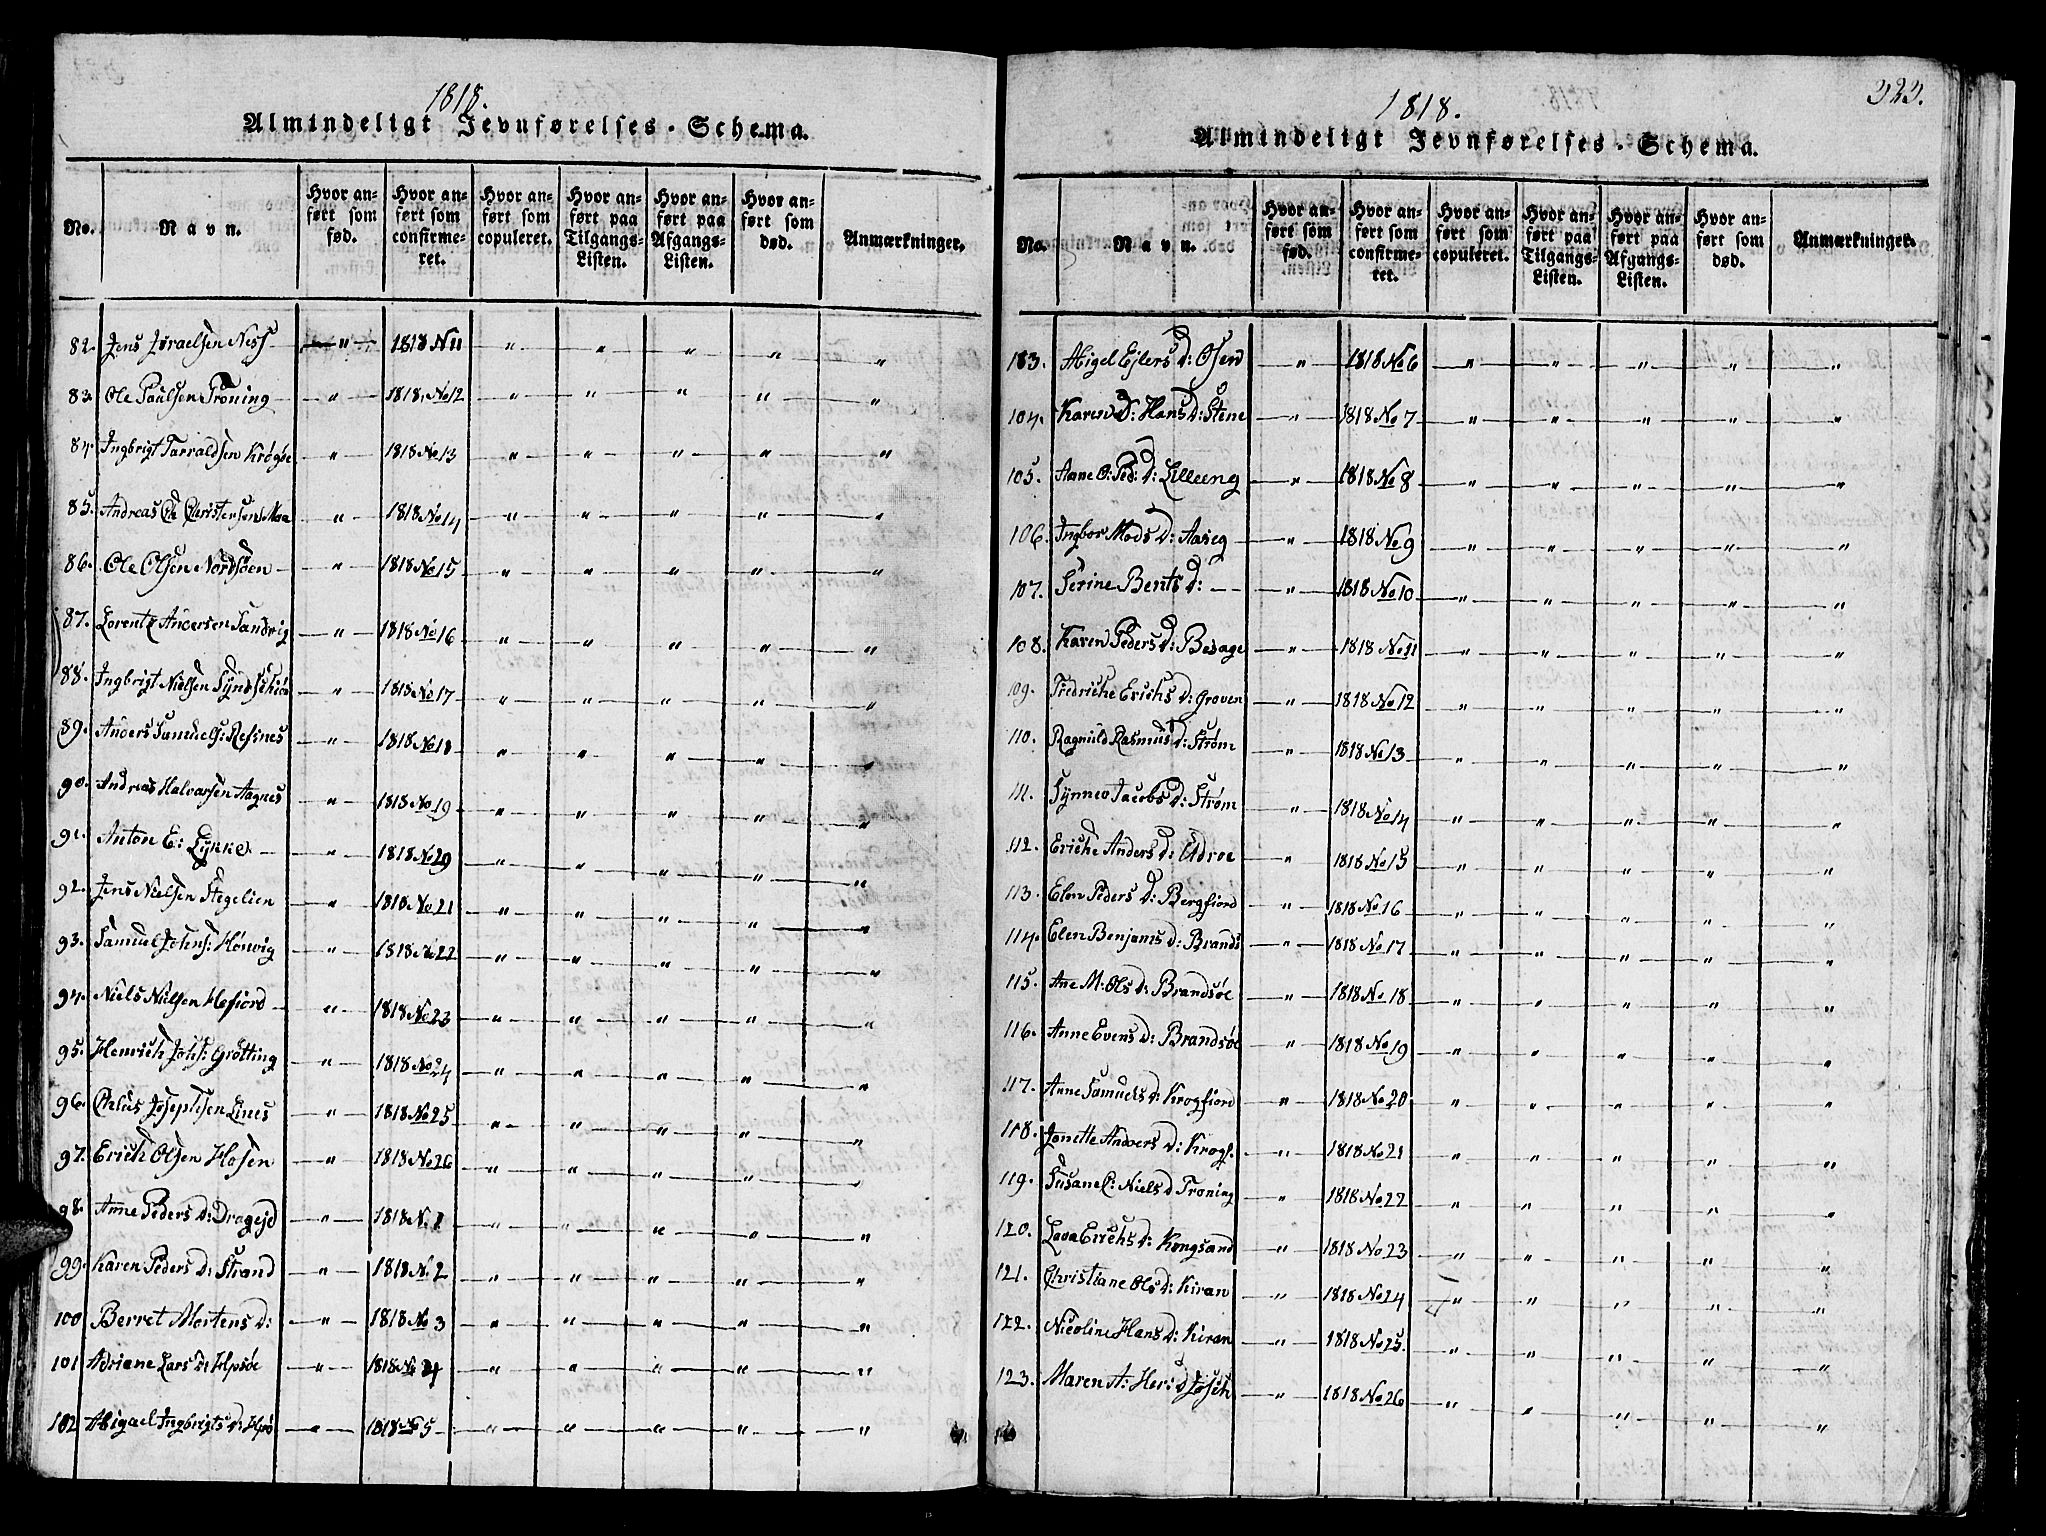 1818.
Almindeligt Jevnførelses-Schema.
No. Navn. Hvor anført som fød. Hvor anført som confirmeret. Hvor anført som copuleret. Hvor anført paa Tilgangs-Listen. Hvor anført paa Afgangs-Listen. Hvor anført som død. Anmærkninger.
82. Jens Jsraelsen Ness — " — 1818 No 11 " " " " "
83. Ole Paulsen Troning — " — 1818. No 12 " " " " "
84. Jngbrigt Tarraldsen Krogøe — " — 1818 No 13 " " " " "
85. Andreas Ch Christensen Moe — " — 1818 No 14 " " " " "
86. Ole Olsen Nordsøen — " — 1818 No 15 " " " " "
87. Lorentz Andersen Sandvig — " — 1818 No 16 " " " " "
88. Jngbrigt Nielsen — " — 1818 No 17 " " " " "
89. Anders Samuels: Refsnes — " — 1818 No 18 " " " " "
90. Andreas Halvarsen Aagnes — " — 1818 No 19 " " " " "
91. Anton E: Lykke — " — 1818 No 20 " " " " "
92. Jens Nielsen Stegelien — " — 1818 No 21 " " " " "
93. Samuel Johns: Hønvig — " — 1818 No 22 " " " " "
94. Niels Nielsen Hofiord — " — 1818 No 23 " " " " "
95. Henrich Johs: Grøtting — " — 1818 No 24 " " " " "
96. Josephsen Lines — " — 1818 No 25 " " " " "
97. Erich Olsen Hosen — " — 1818 No 26 " " " " "
98. Anne Peders d: Drageid — " — 1818 No 1 " " " " "
99. Karen Peders d: Strand — " — 1818 No 2 " " " " "
100 Berret Mortens d: — " — 1818 No 3 " " " " "
101 Adriane Lars d: Hopsøe — " — 1818 No 4 " " " " "
102 Abigael Jngbrigts d: Hopsø — " — 1818 No 5 " " " " "
323.
1818.
Almindeligt Jevnførelses-Schema.
No. Navn. Hvor anført som fød. Hvor anført som confirmeret. Hvor anført som copuleret. Hvor anført paa Tilgangs-Listen. Hvor anført paa Afgangs-Listen. Hvor anført som død. Anmærkninger.
103. Abigel Ejlers d: Osen — " — 1818 No 6 " " " " "
104. Karen D: Hans d: Stene — " — 1818 No 7 " " " " "
105. Aane O: Ped: d: Lilleeng — " — 1818 No 8 " " " " "
106. Jngbor Mads d: Aaseg — " — 1818 No 9 " " " " "
107. Serine Bents d: — " — 1818 No 10 " " " " "
108. Karen Peders d: Besage — " — 1818 No 11 " " " " "
109. Fredriche Erichs d: Groven — " — 1818 No 12 " " " " "
110. Ragnild Rasmus d: Strøm — " — 1818 No 13 " " " " "
111. Synnev Jacobs d: Strøm — " — 1818 No 14 " " " " "
112. Eriche Anders d: Udroe — " — 1818 No 15 " " " " "
113. Elen Peders d: Bergfiord — " — 1818 No 16 " " " " "
114. Elen Benjams d: Brands — " — 1818 No 17 " " " " "
115. Ane M: Ols d: Brandsøe — " — 1818 No 18 " " " " "
116. Anne Evens d: Brandsøe — " — 1818 No 19 " " " " "
117. Anne Samuels d: Krogfiord — " — 1818 No 20 " " " " "
118. Jonette Anders d: Krogf. — " — 1818 No 21 " " " " "
119. Susane C: Niels d Troning — " — 1818 No 22 " " " " "
120. Lava Erichs d: Kongsand — " — 1818 No 23 " " " " "
121. Christiane Ols d: Kiran — " — 1818 No 24 " " " " "
122. Nicoline Hans d: Kiran — " — 1818 No 25. " " " " "
123. Maren A: Her: d — " — 1818 No 26 " " " " "